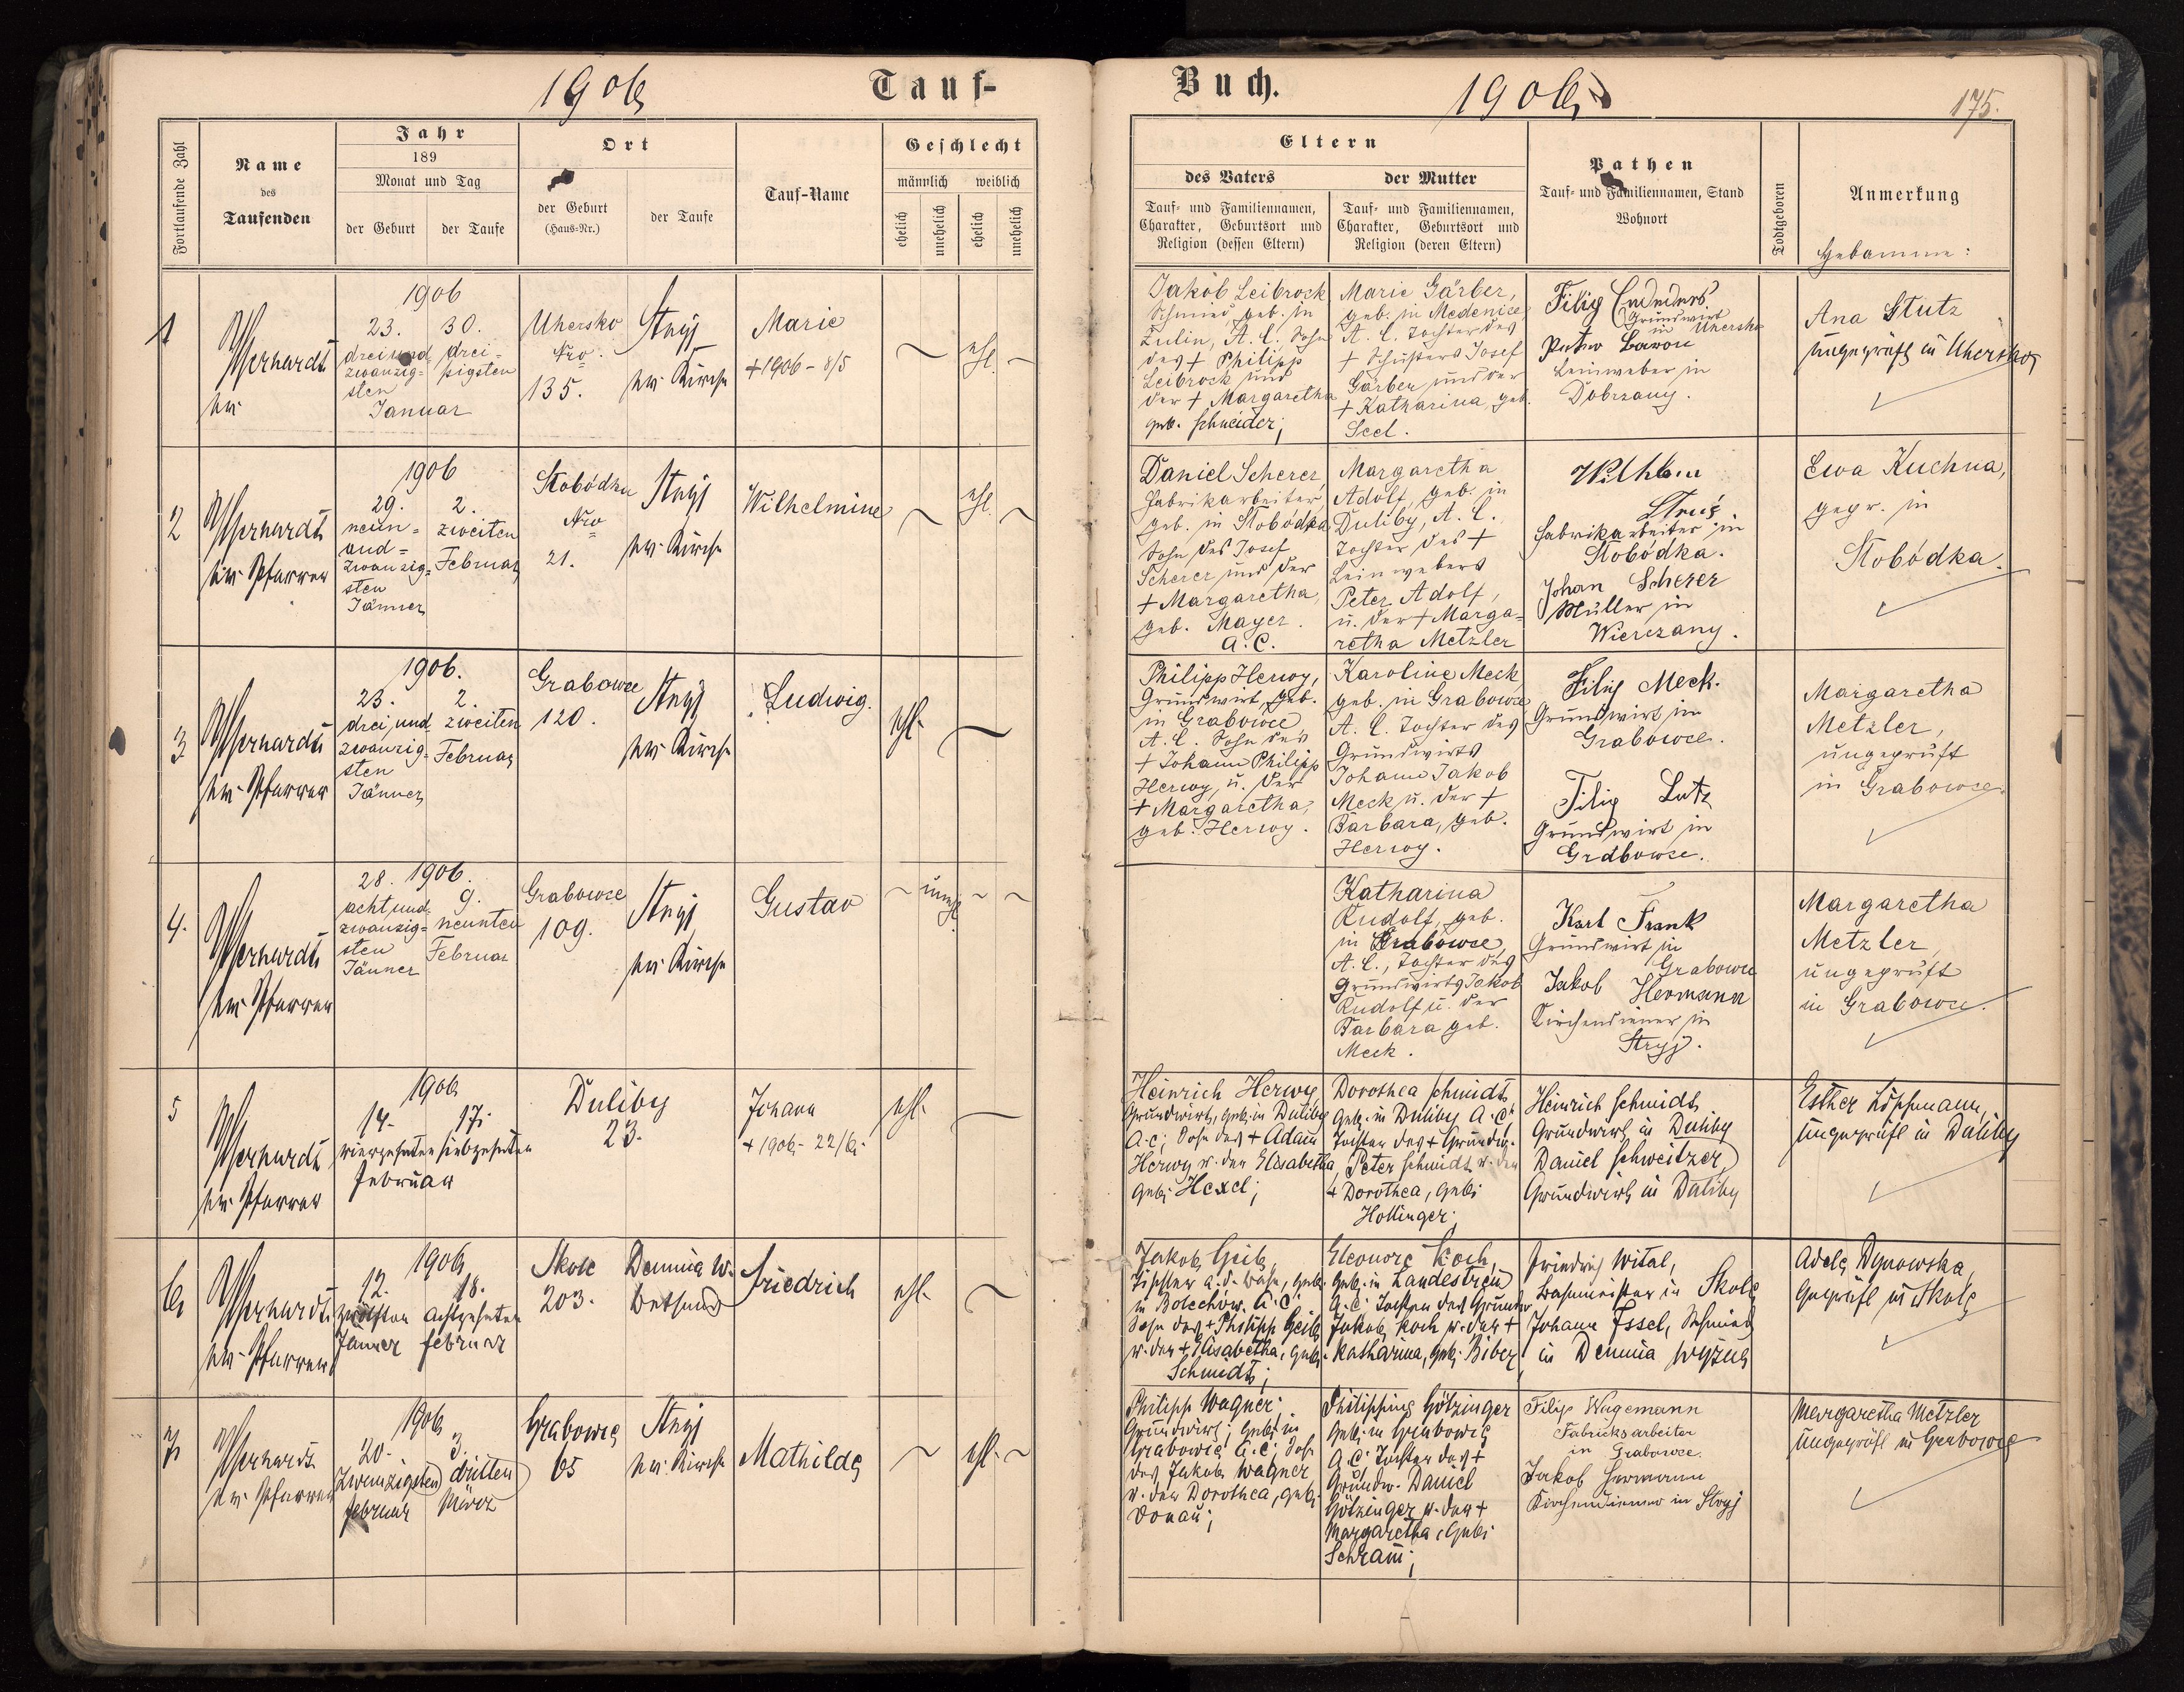 1906
Tauf-
Buch.
1906
175.
Fortlaufende Zahl
Name
des
Taufenden
Jahr
189
Monat und Tag
der Geburt
der Taufe
Ort
der Geburt
(Haus-Nr.)
der Taufe
Tauf-Name
Geschlecht
männlich weiblich
ehelich
unehelich
ehelich
unehelich
Eltern
des Vaters
der Mutter
Tauf- und Familiennamen,
Charakter, Geburtsort und
Religion (dessen Eltern)
Tauf- und Familiennamen,
Charakter, Geburtsort und
Religion (deren Eltern)
Pathen
Tauf- und Familiennamen, Stand
Wohnort
Todtgeboren
Anmerkung
Hebamme:
1
1906
23. 30.
drei und drei-
zwanzig- ßigsten
sten
Januar
Uhersko
Nro.
135.
Stryj
ev. Kirche
Marie
+ 1906 - 8/5
ehl.
Jakob Leibrock
Schmied geb. in
Zulin, A. C. Sohn
des + Philipp
Leibrock und
der + Margaretha
geb. Schneider;
Marie Gärber,
geb. in Medenice
A. C. Tochter des
+ Schusters Josef
Gärber und der
+ Katharina, geb.
Seel.
Filip
Grundwirt
in Uhersko
Leinweber in
Dobrzany.
Ana Stutz
ungeprüft in Uhersko
2
ev. Pfarrer
1906
29. 2.
neun- zweiten
und- Februar
zwanzig-
sten
Jänner
Slobódka
Nro
21.
Stryj
ev. Kirche
Wilhelmine
ehl.
Daniel Scherer,
Fabrikarbeiter,
geb. in Slobódka
Sohn des Josef
Scherer und der
+ Margaretha,
geb. Mayer.
A. C.
Margaretha
Adolf, geb. in
Duliby, A. C.,
Tochter des +
Leinwebers
Peter Adolf,
u. der + Marga-
retha Metzler
Fabrikarbeiter in
Slobódka.
Johan Scherer
Müller in
Wierczany.
Ewa Kuchna,
gepr. in
Slobódka.
3
ev. Pfarrer
1906.
23. 2.
drei und zweiten
zwanzig- Februar
sten
Jänner
Grabowce
120.
Stryj
ev. Kirche
Ludwig.
ehl.
Philipp Herwy,
Grundwirt, geb.
in Grabowce
A. C. Sohn des
+ Johann Philipp
Herwy, u. der
+ Margaretha,
geb. Herwy.
Karoline Meck
geb. in Grabowce
A. C. Tochter des
Grundwirts
Johann Jakob
Meck u. der +
Barbara, geb.
Herwy.
Filip Meck.
Grundwirt in
Grabowce.
Filip Lutz
Grundwirt in
Grabowce.
Margaretha
Metzler,
ungeprüft
in Grabowce.
4.
ev. Pfarrer
28. 1906.
acht und 9.
zwanzig- neunten
sten Februar
Jänner
Grabowce
109.
Stryj
ev. Kirche
Gustav
unehl.
Katharina
Rudolf, geb.
in Grabowce,
A. C., Tochter des
Grundwirts Jakob
Rudolf u. der
Barbara geb.
Meck.
Karl Frank
Grundwirt in
Grabowce
Jakob Hermann
Kirchendiener in
Stryj.
Margaretha
Metzler,
ungeprüft
in Grabowce.
5
ev. Pfarrer
1906
14. 17.
vierzehnten siebzehnten
Februar
Duliby
23.
Johann
+ 1906 - 22/6.
ehl.
Heinrich Herwy
Grundwirt, geb. in Duliby
A. C.; Sohn des + Adam
Herwy u. der Elisabetha
geb. Hexel;
Dorothea Schmidt
geb. in Duliby A. C.
Tochter des + Grundw.
Peter Schmidt u. der
+ Dorothea, geb.
Hollinger;
Heinrich Schmidt
Grundwirt in Duliby
Daniel Schweitzer,
Grundwirt in Duliby
ungeprüft in Duliby
6
ev. Pfarrer
1906
12. 18.
zwölften achtzehnten
Jänner Februar
Skole
203.
Demnia w.
Bethaus
Friedrich
ehl.
Jakob Geib,
in Bolechów. A. C.
Sohn des + Philipp Geib
u. der + Elisabetha, geb.
Schmidt;
Eleonore Koch,
geb. in Landestreu
A. C. Tochter des Grundw.
Jakob Koch u. der +
Katharina, geb. Biber
Friedrich Wital,
Bahnmeister in Skole
Johann Essel, Schmied
in Demnia wyżna
Adele Dynowska
geprüft in Skole
7
ev. Pfarrer
1906
20. 3.
Zwanzigsten dritten
Februar März
Grabowce
65
Stryj
ev. Kirche
Mathilde
ehl.
Philipp Wagner;
Grundwirt; geb. in
Grabowce A. C; Sohn
des Jakob Wagner
u. der Dorothea, geb.
Donau;
Philippine Götzinger
geb. in Grabowce
A. C. Tochter des +
Grundw. Daniel
Götzinger u. der +
Margaretha, geb.
Schram;
Filip Wagemann
Fabriksarbeiter
in Grabowce.
Jakob Hermann
Kirchendiener in Stryj
Margaretha Metzler
ungeprüft in Grabowce